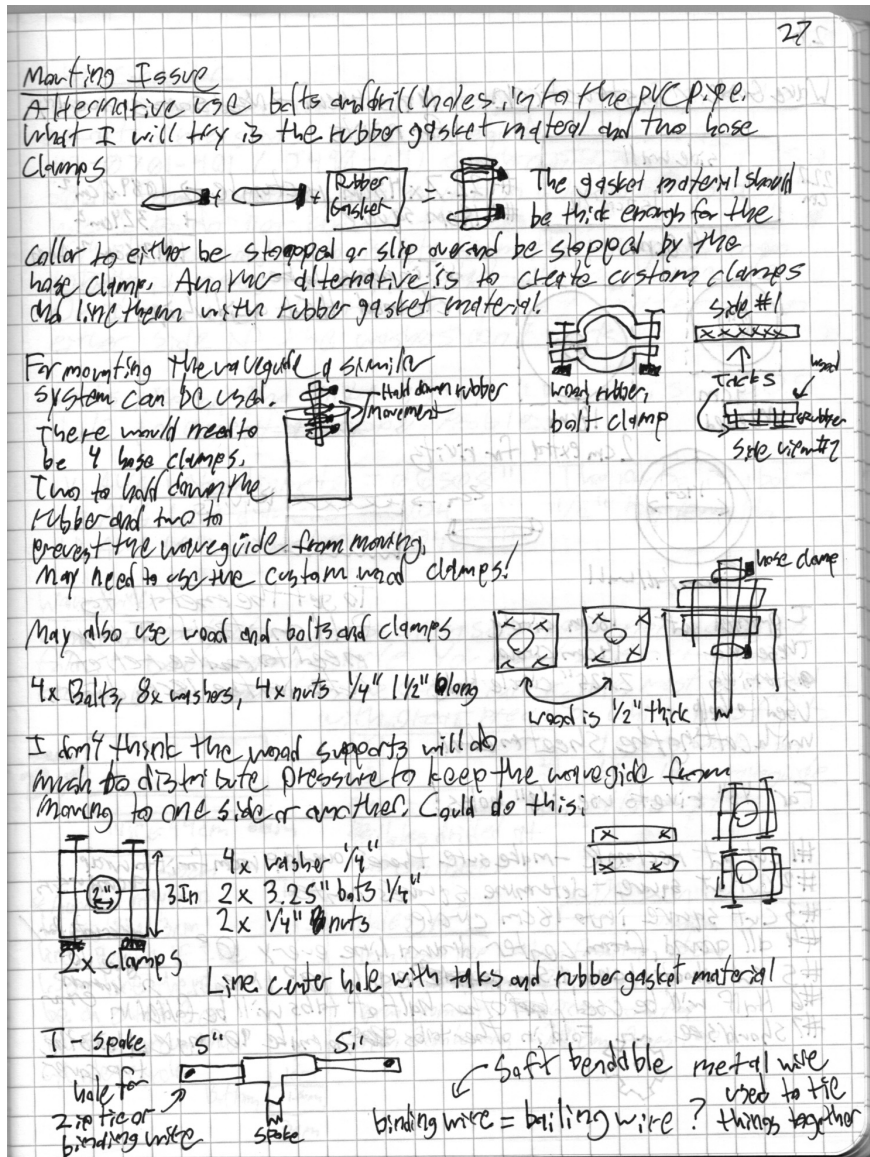 27.
Mounting Issue
Alternative use bolts and drill holes into the PVC pipe.
What I will try is the rubber gasket material and two hose
Clamps
+ + Rubber Gasket =
The gasket material should
be thick enough for the
collar to either be stopped or slip over and be stopped by the
hose clamp. Another alternative is to create custom clamps
and line them with rubber gasket material.
Side #1
xxxxxx
Tacks
wood
rubber
Side view #2
wood rubber,
bolt clamp
For mounting the waveguide a similar
system can be used.
Hold down rubber
movement
There would need to
be 4 hose clamps.
Two to hold down the
rubber and two to
prevent the waveguide from moving.
May need to use the custom wood clamps!
hose clamp
May also use wood and bolts and clamps
x x x x
x x x x
4x Bolts, 8x washers, 4x nuts 1/4" 1 1/2" long
wood is 1/2" thick
I don't thsnk the wood supports will do
much to distribute pressure to keep the wavegide from
moving to one side or another. Could do this:
x x
x x
2"
3In
4x washer 1/4"
2x 3.25" bolts 1/4"
2x 1/4" nuts
2x clamps
Line center hole with taks and rubber gasket material
T-spoke
5" 5"
hole for
zip tie or
binding wire
spoke
Soft bendable metal wire
used to tie
things together
binding wire = bailing wire ?